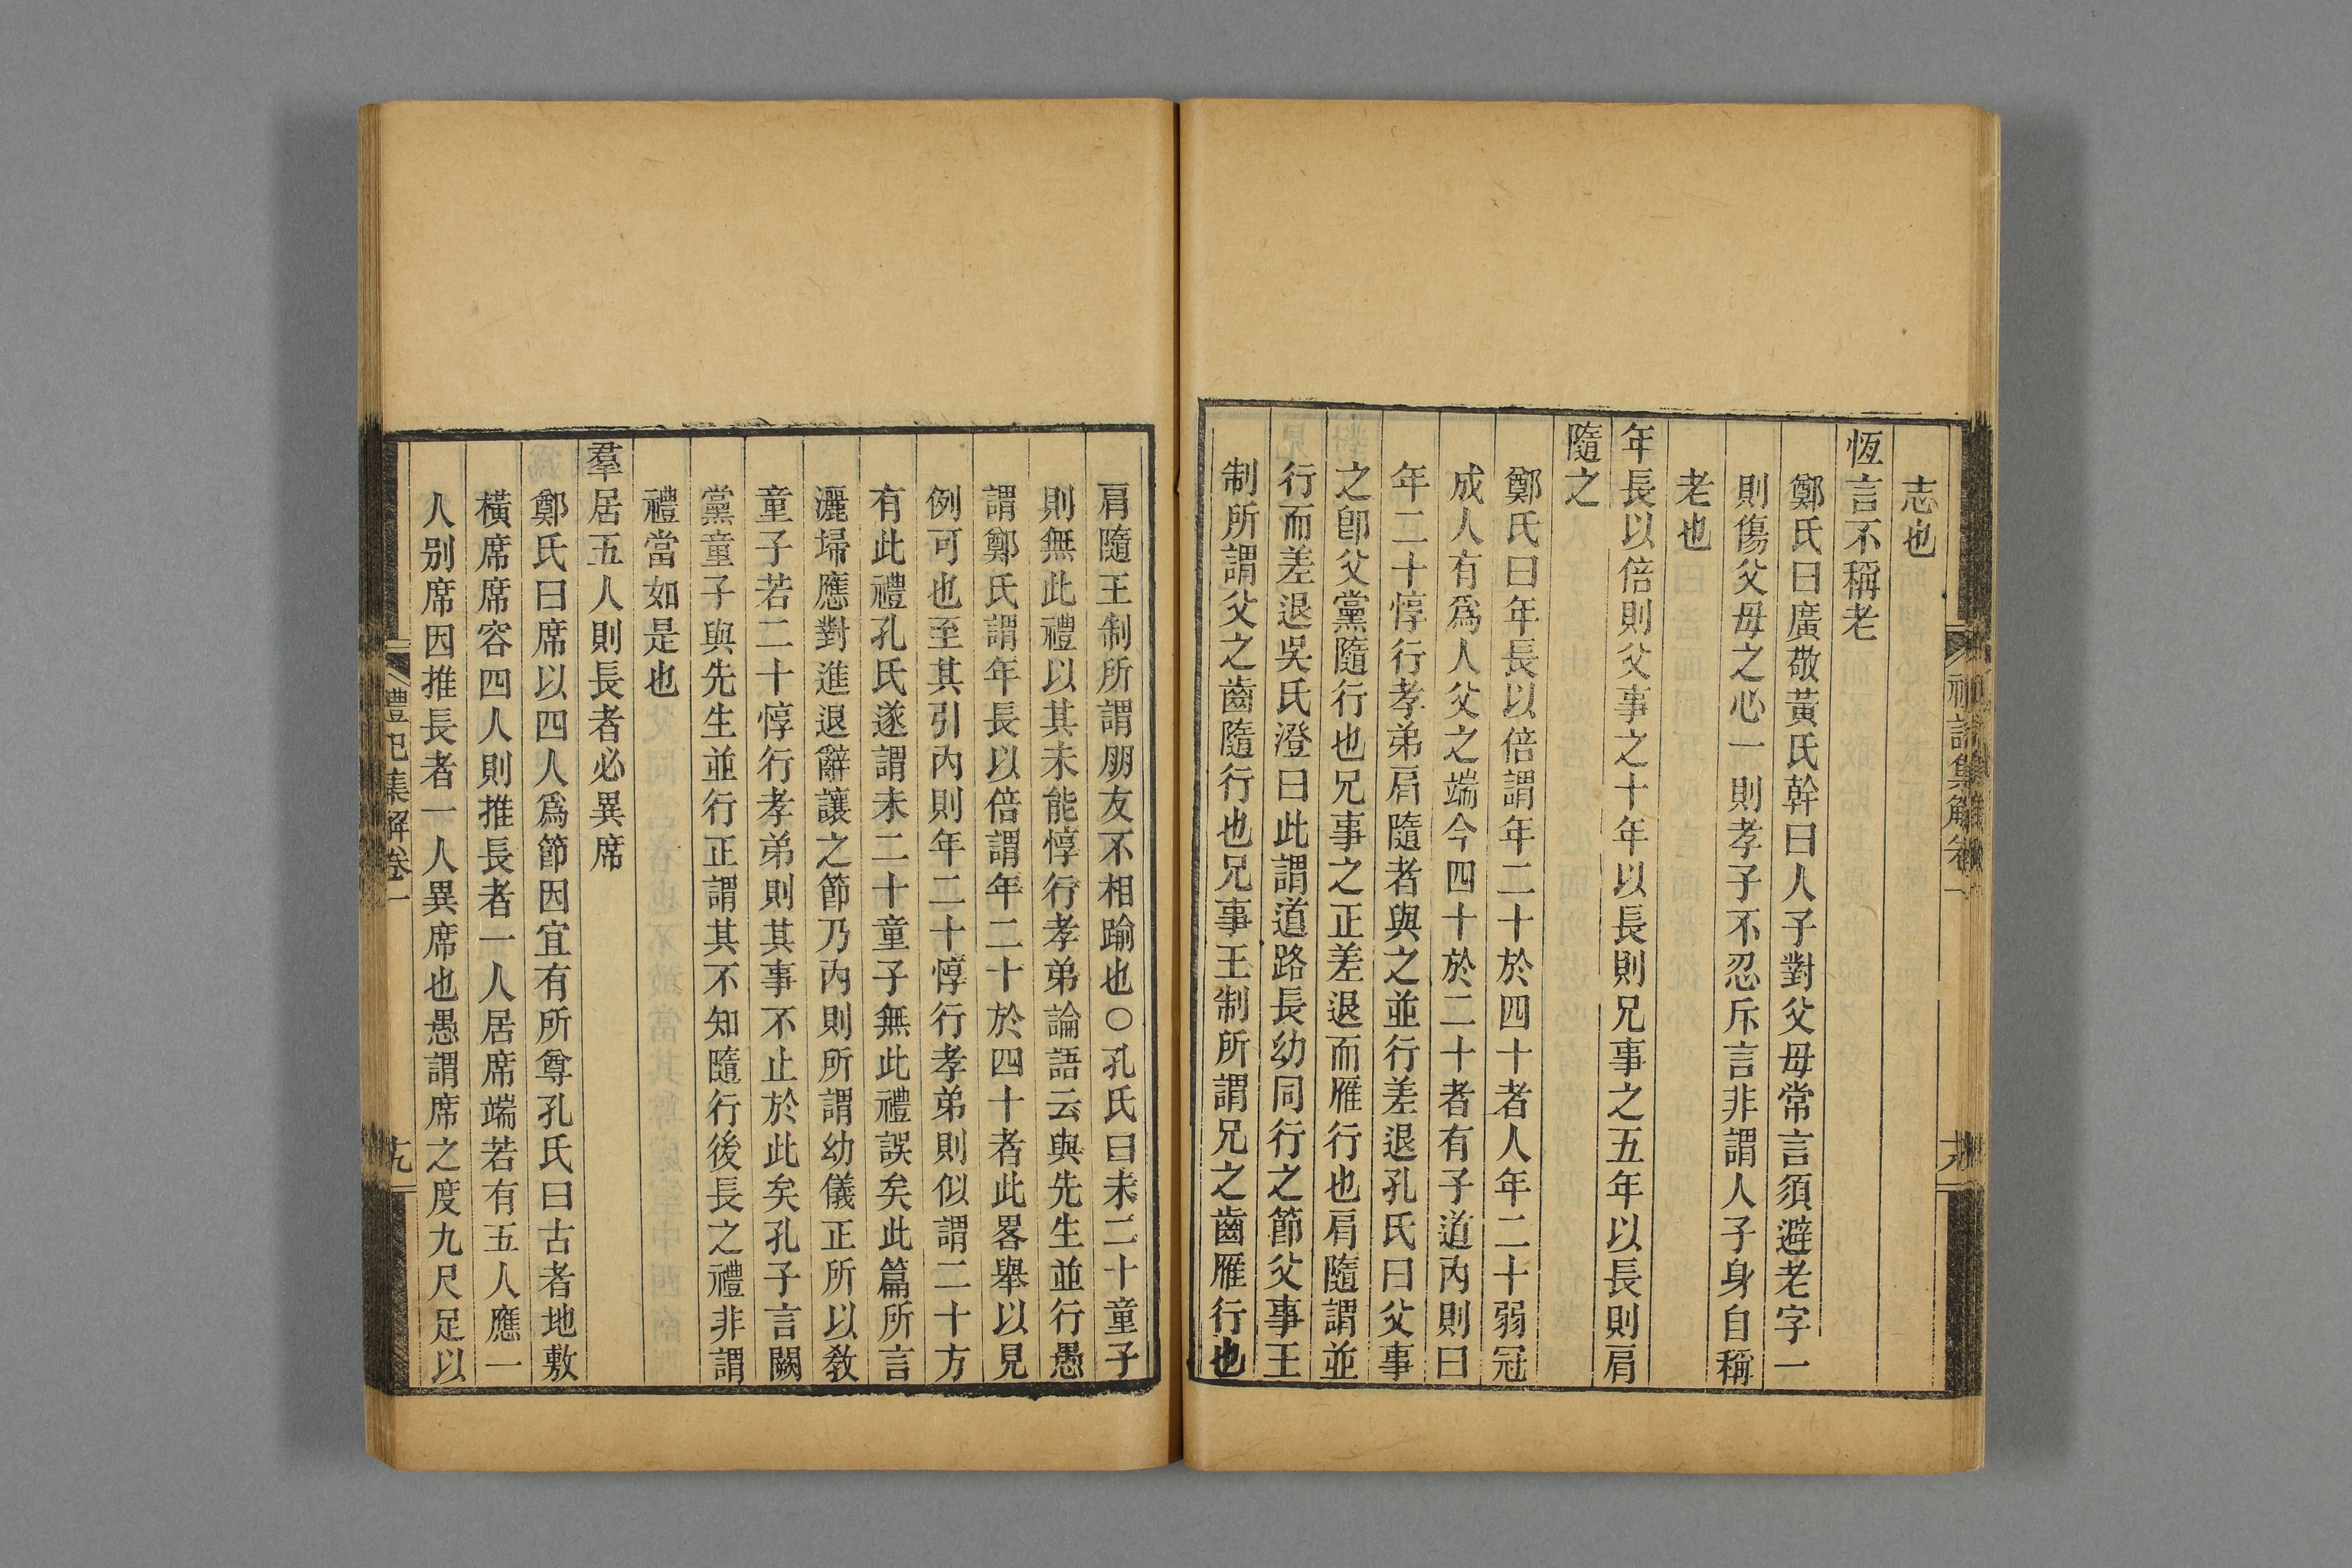 志也
恆言不稱老
鄭氏曰廣敬黃氏幹曰人子對父母常言須避老字一
則傷父母之心一則孝子不忍斥言非謂人子身自稱
老也
年長以倍則父事之十年以長則兄事之五年以長則肩
隨之
鄭氏曰年長以倍謂年二十於四十者人年二十弱冠
成人有爲人父之端今四十於二十者有子道內則曰
年二十惇行孝弟肩隨者與之並行差退孔氏曰父事
之卽父黨隨行也兄事之正差退而雁行也肩隨謂並
行而差退吳氏澄曰此謂道路長幼同行之節父事王
制所謂父之齒隨行也兄事王制所謂兄之齒雁行也
肩隨王制所謂朋友不相踰也○孔氏曰未二十童子
則無此禮以其未能惇行孝弟論語云與先生並行愚
謂鄭氏謂年長以倍謂年二十於四十者此畧舉以見
例可也至其引內則年二十惇行孝弟則似謂二十方
有此禮孔氏遂謂未二十童子無此禮誤矣此篇所言
灑埽應對進退辭讓之節乃內則所謂幼儀正所以敎
童子若二十惇行孝弟則其事不止於此矣孔子言闕
黨童子與先生並行正謂其不知隨行後長之禮非謂
禮當如是也
羣居五人則長者必異席
鄭氏曰席以四人爲節因宜有所尊孔氏曰古者地敷
橫席席容四人則推長者一人居席端若有五人應一
人別席因推長者一人異席也愚謂席之度九尺足以
禮記集解卷一